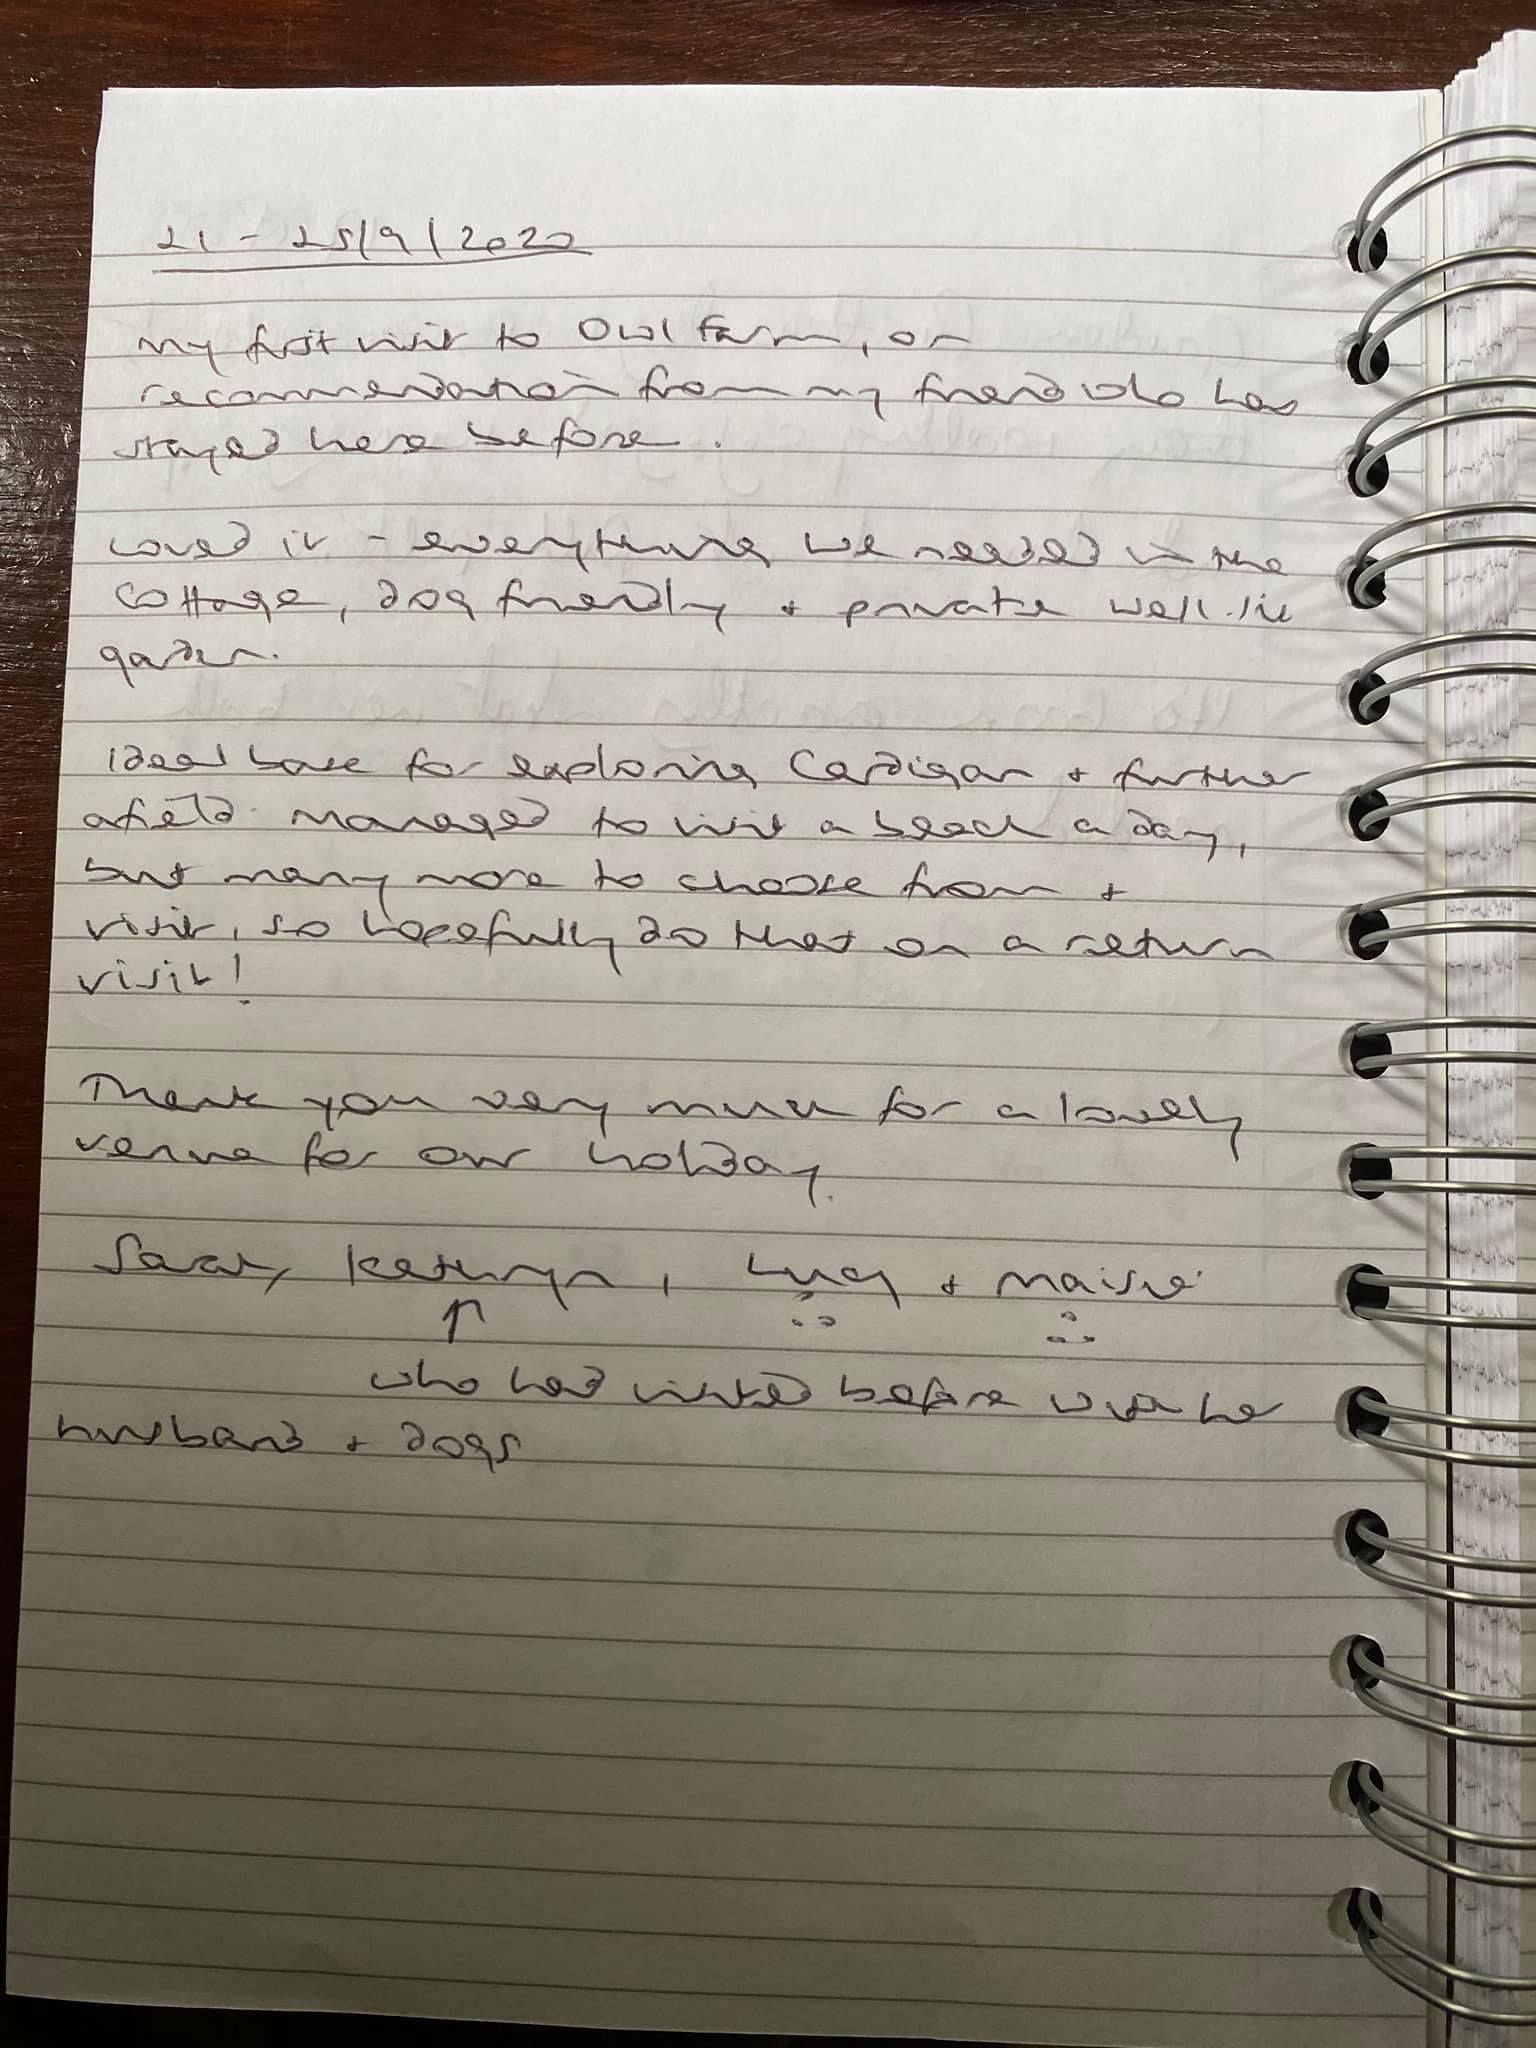 21 - 25/9/2020
My first visit to Owl Farm, on
recommendation from my friend who has
stayed here before.
Loved it - everything we needed in the
cottage, dog friendly + private well-lit
garden.
Ideal base for exploring Cardigan + further
afield. Managed to visit a beach a day,
but many more to choose from +
visit, so hopefully do that on a return
visit!
Thank you very much for a lovely
venue for our holiday.
Sarah, Kathryn, Lucy + Maisie
who had visited before with her
husband + dogs